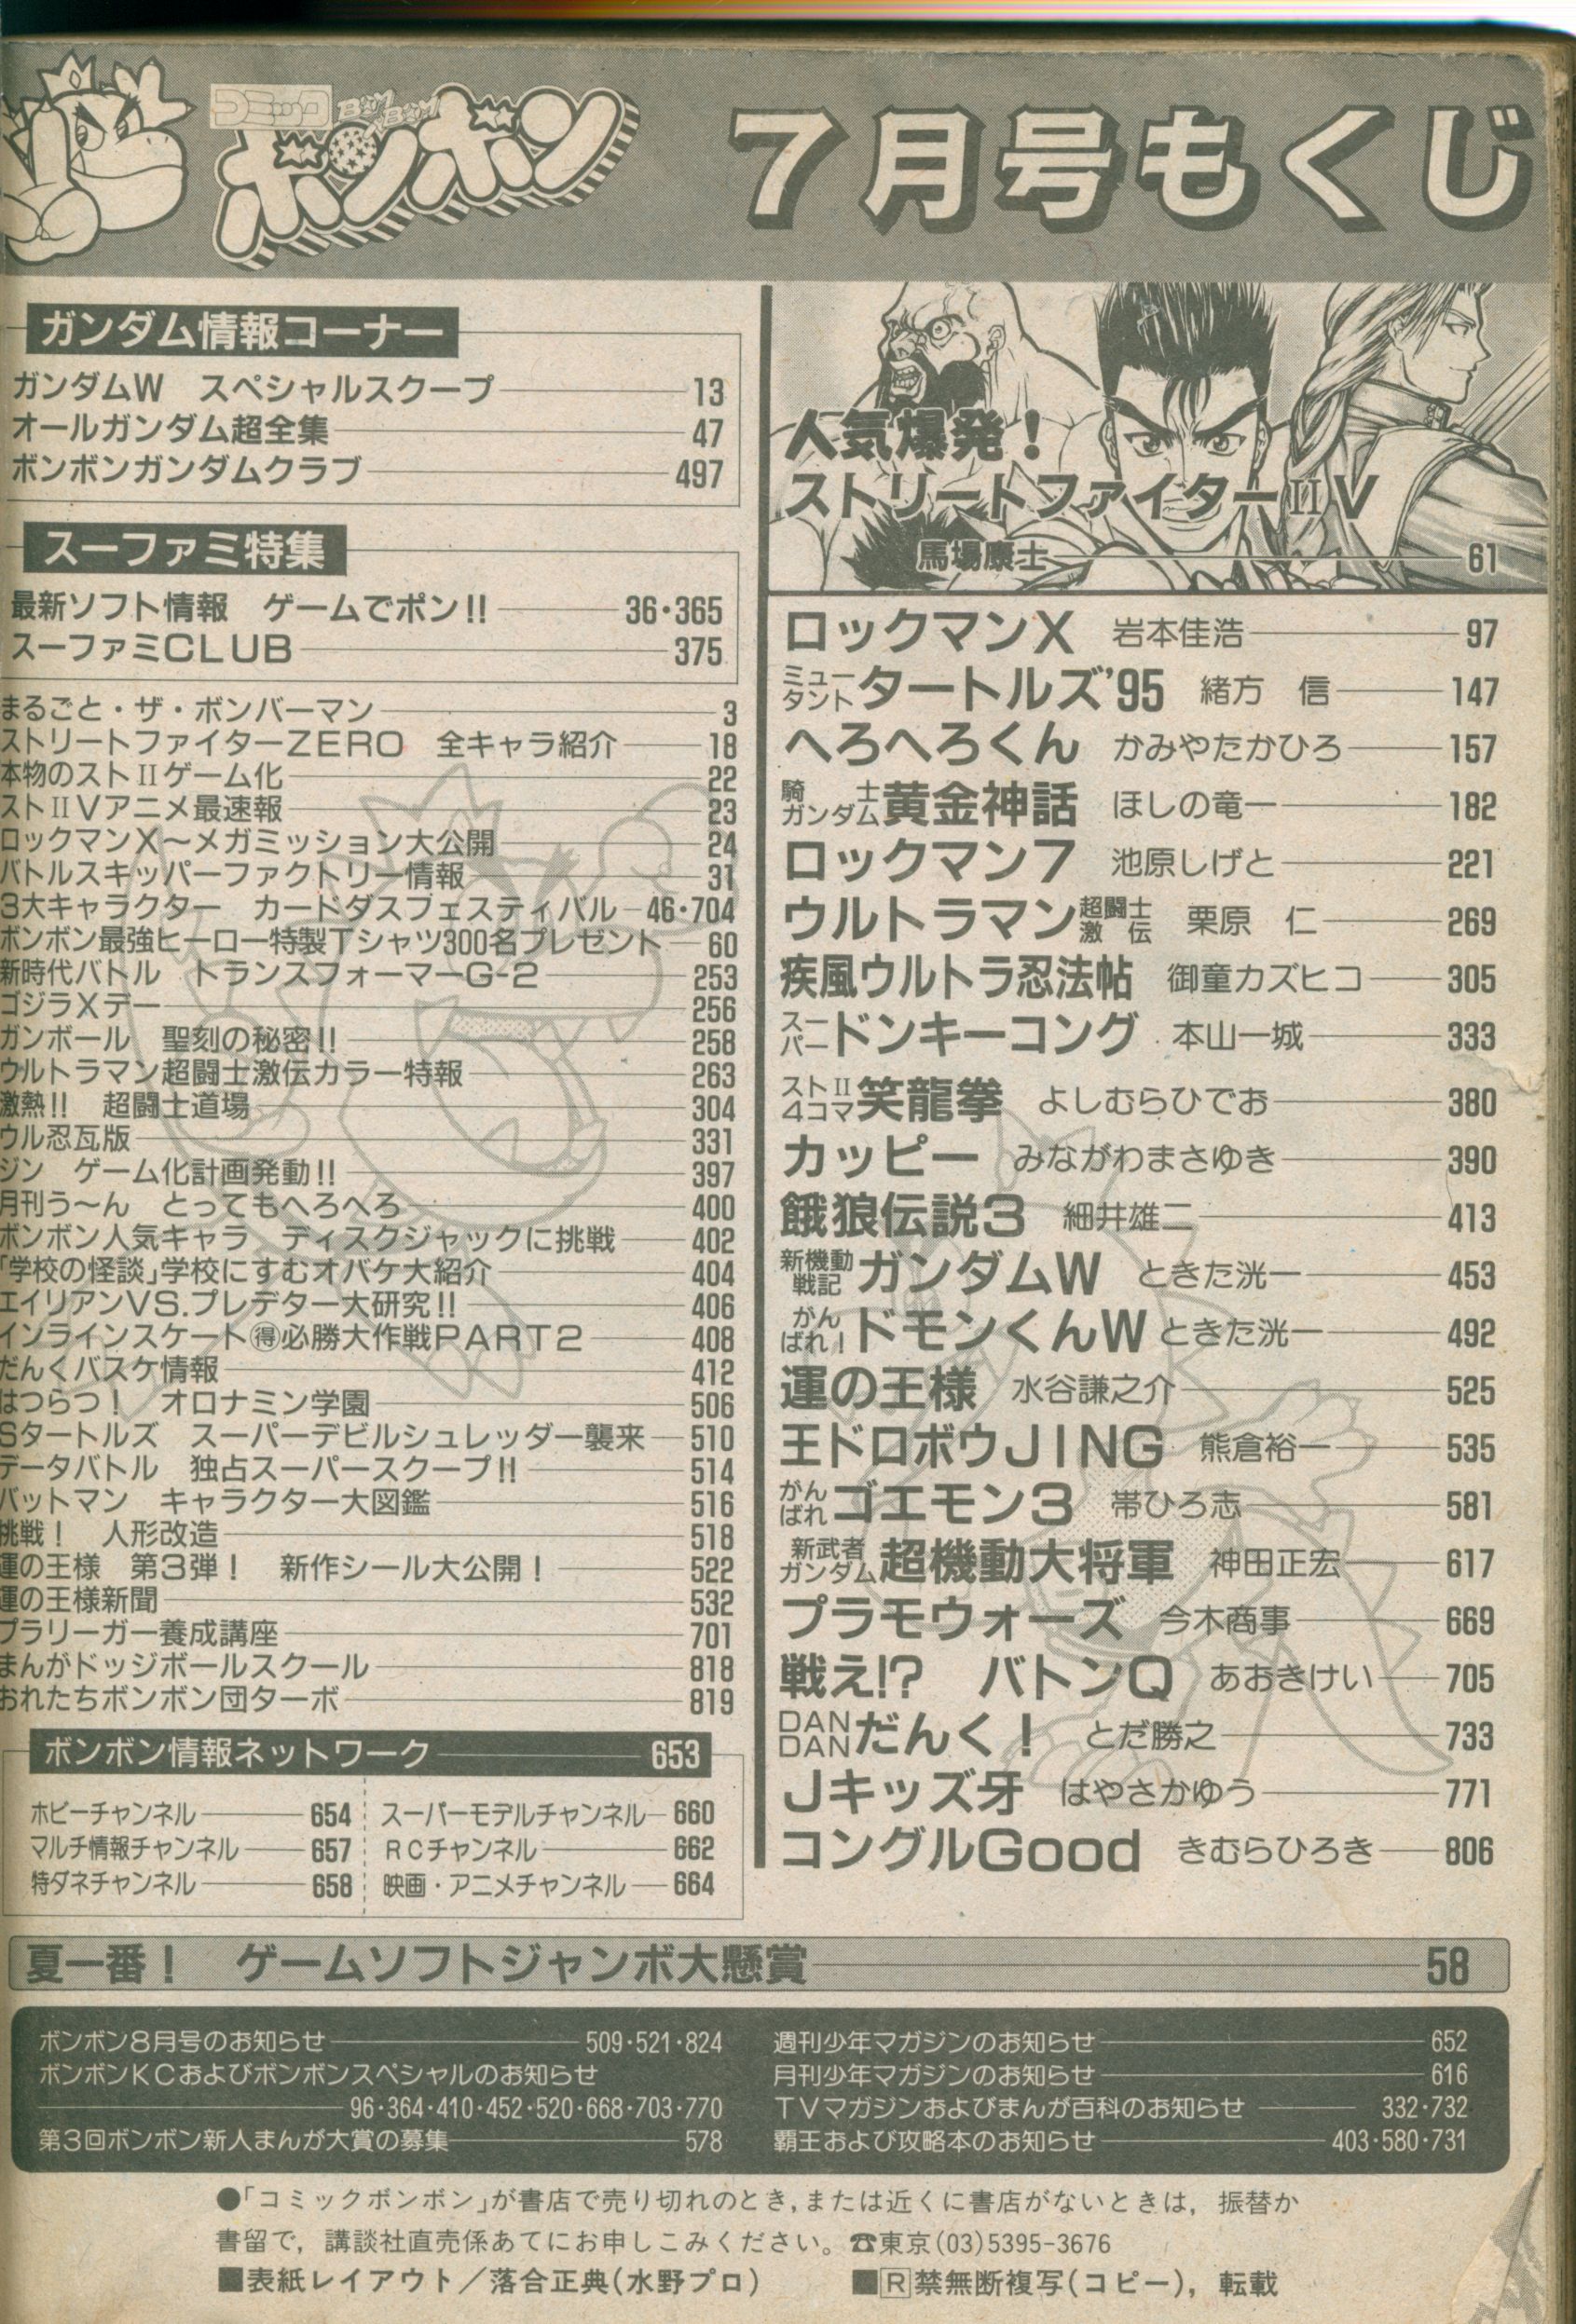 コミック BOM BOM
ボンボン
7月号もくじ
ガンダム情報コーナー
ガンダムW スペシャルスクープ 13
オールガンダム超全集 47
ボンボンガンダムクラブ 497
スーファミ特集
最新ソフト情報 ゲームでポン!! 36・365
スーファミCLUB 375
まるごと・ザ・ボンバーマン 3
ストリートファイターZERO 全キャラ紹介 18
本物のストⅡゲーム化 22
ストⅡVアニメ最速報 23
ロックマンX〜メガミッション大公開 24
バトルスキッパーファクトリー情報 31
3大キャラクター カードダスフェスティバル 46・704
ボンボン最強ヒーロー特製Tシャツ300名プレゼント 60
新時代バトル トランスフォーマーG-2 253
ゴジラXデー 256
ガンボール 聖刻の秘密!! 258
ウルトラマン超闘士激伝カラー特報 263
激熱!! 超闘士道場 304
ウル忍瓦版 331
ジン ゲーム化計画発動!! 397
月刊う〜ん とってもへろへろ 400
ボンボン人気キャラ ディスクジャックに挑戦 402
「学校の怪談」学校にすむオバケ大紹介 404
エイリアンVS.プレデター大研究!! 406
インラインスケート㊝必勝大作戦PART2 408
だんくバスケ情報 412
はつらつ! オロナミン学園 506
Sタートルズ スーパーデビルシュレッダー襲来 510
データバトル 独占スーパースクープ!! 514
バットマン キャラクター大図鑑 516
挑戦! 人形改造 518
運の王様 第3弾! 新作シール大公開! 522
運の王様新聞 532
プラリーガー養成講座 701
まんがドッジボールスクール 818
おれたちボンボン団ターボ 819
ボンボン情報ネットワーク 653
ホビーチャンネル 654
マルチ情報チャンネル 657
特ダネチャンネル 658
スーパーモデルチャンネル 660
RCチャンネル 662
映画・アニメチャンネル 664
人気爆発!
ストリートファイターⅡV
馬場康士 61
ロックマンX 岩本佳浩 97
ミュータントタートルズ'95 緒方 信 147
へろへろくん かみやたかひろ 157
騎士ガンダム黄金神話 ほしの竜一 182
ロックマン7 池原しげと 221
ウルトラマン超闘士激伝 栗原 仁 269
疾風ウルトラ忍法帖 御童カズヒコ 305
スーパードンキーコング 本山一城 333
ストⅡ4コマ笑龍拳 よしむらひでお 380
カッピー みながわまさゆき 390
餓狼伝説3 細井雄二 413
新機動戦記ガンダムW ときた洸一 453
がんばれ!ドモンくんW ときた洸一 492
運の王様 水谷謙之介 525
王ドロボウJING 熊倉裕一 535
がんばれゴエモン3 帯ひろ志 581
新武者ガンダム超機動大将軍 神田正宏 617
プラモウォーズ 今木商事 669
戦え!? バトンQ あおきけい 705
DAN DANだんく! とだ勝之 733
Jキッズ牙 はやさかゆう 771
コングルGood きむらひろき 806
夏一番! ゲームソフトジャンボ大懸賞 58
ボンボン8月号のお知らせ 509・521・824
ボンボンKCおよびボンボンスペシャルのお知らせ
96・364・410・452・520・668・703・770
第3回ボンボン新人まんが大賞の募集 578
週刊少年マガジンのお知らせ 652
月刊少年マガジンのお知らせ 616
TVマガジンおよびまんが百科のお知らせ 332・732
覇王および攻略本のお知らせ 403・580・731
●「コミックボンボン」が書店で売り切れのとき,または近くに書店がないときは, 振替か
書留で, 講談社直売係あてにお申しこみください。☎東京(03)5395-3676
■表紙レイアウト/落合正典(水野プロ) ■R禁無断複写(コピー), 転載